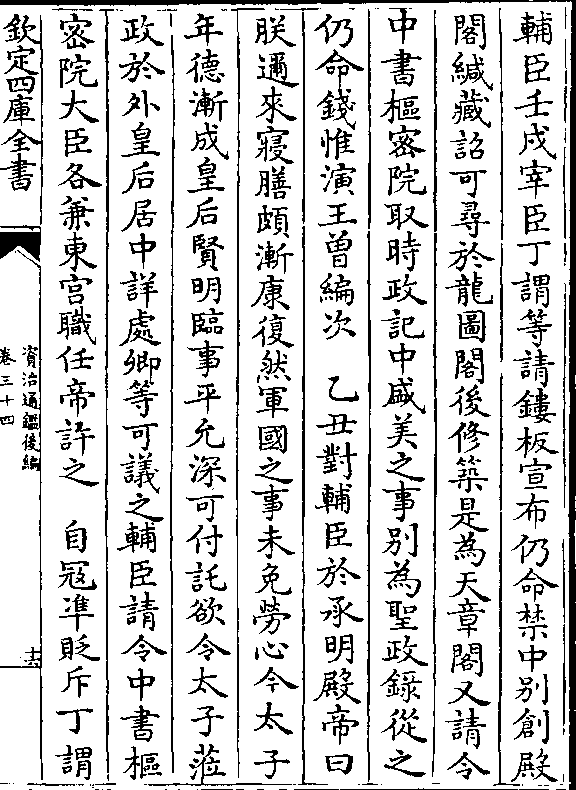 輔臣壬戌宰臣丁謂等請鏤板宣布仍命禁中别創殿
閣緘藏詔可尋於龍圖閣後修築是為天章閣又請令
中書樞密院取時政記中盛美之事别為聖政錄從之
仍命錢惟演王曾編次　乙丑對輔臣於承明殿帝曰
朕邇來寢膳頗漸康復然軍國之事未免勞心今太子
年德漸成皇后賢明臨事平允深可付託欲令太子蒞
政於外皇后居中詳處卿等可議之輔臣請令中書樞
密院大臣各兼東宮職任帝許之　自冦凖貶斥丁謂
欽定四庫全書
資治通鑑後編
卷三十四
十六